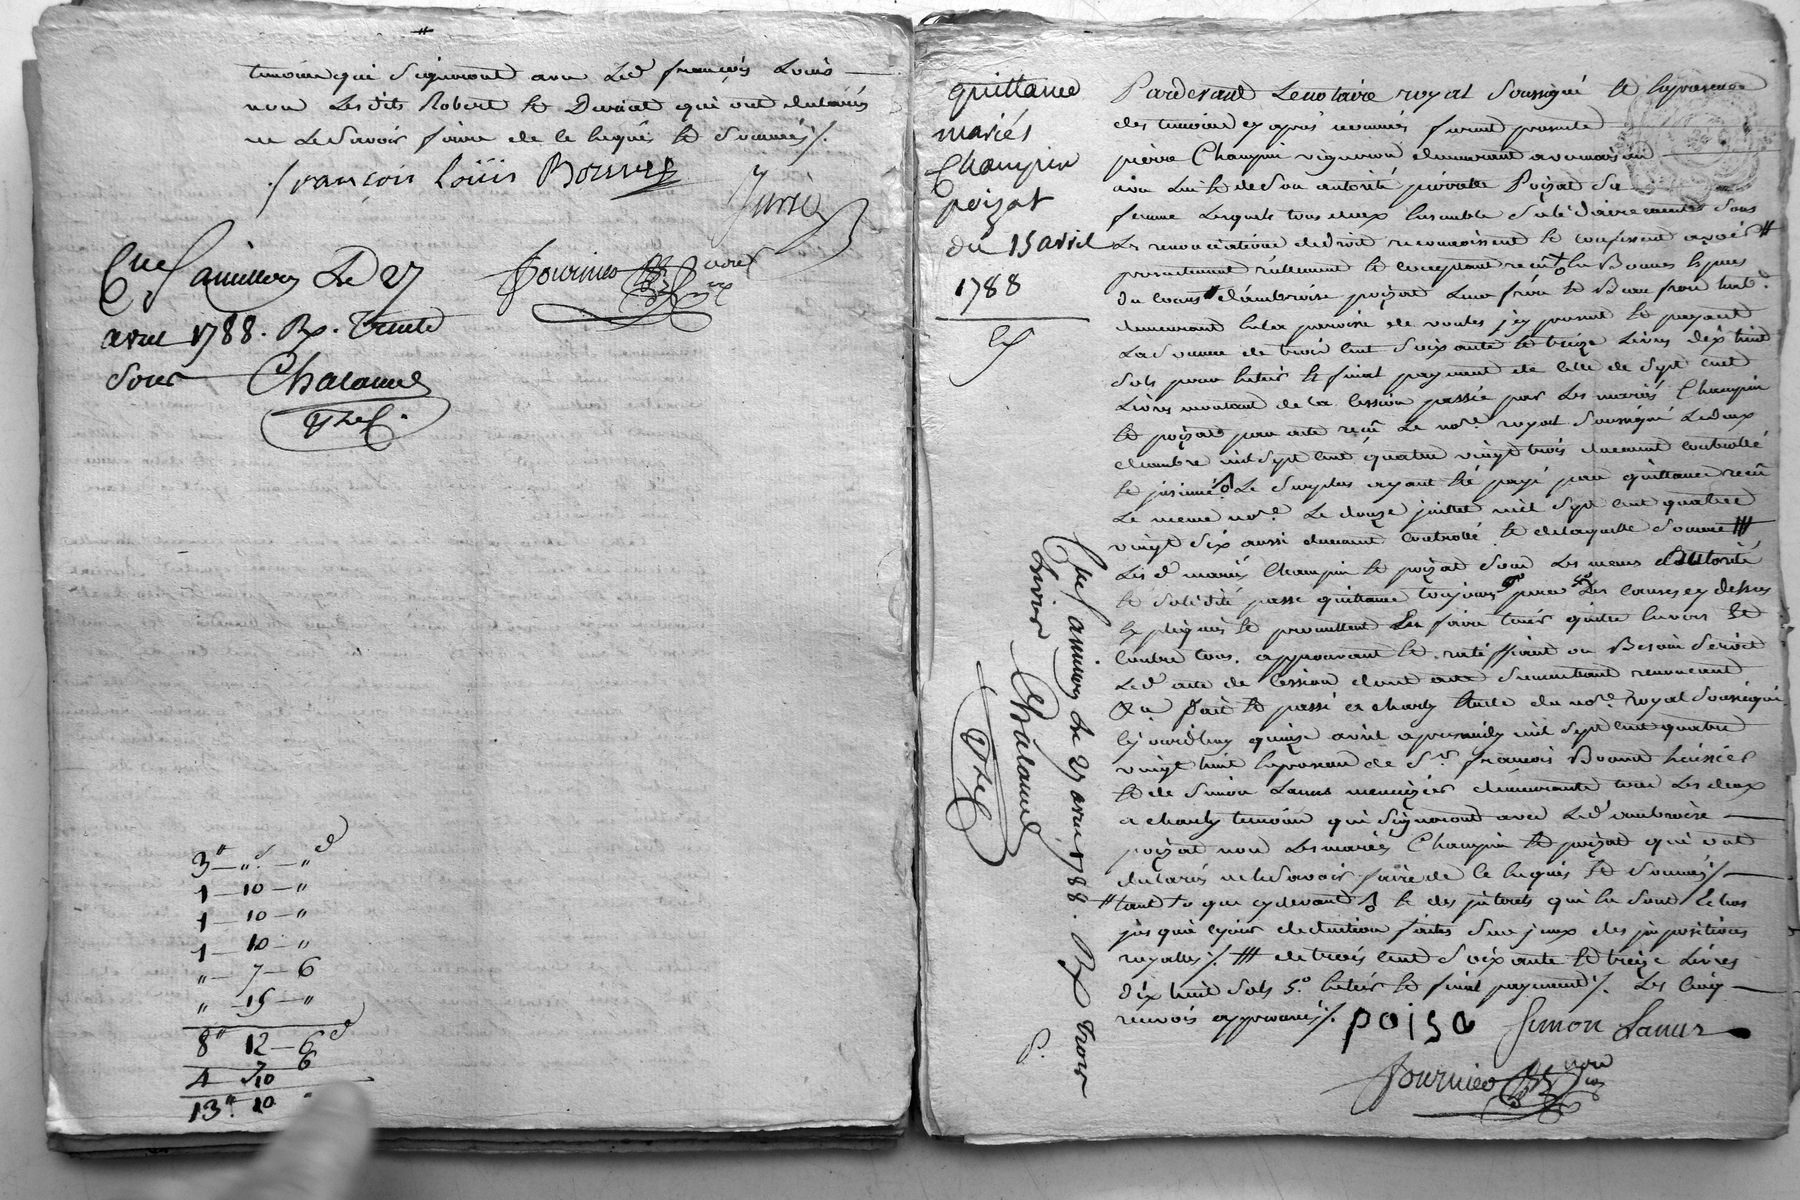 temoins qui signeront avec Led françois Louis
non Lesdits Robert et Duriat qui ont declarés
ne Le Savoir faire de ce enquis et Sommés /.
françois loüis Bouvier
Cllé a amillon Le 27
avril 1788. Rx. Trente
Sous Chalamel
fournier nore
3ᵗᵗ — „ ˢ — „ ᵈ
1 — 10 — „
1 — 10 — „
1 — 10 — „
„ — 7 — 6
„ — 15 — „
8ᵗᵗ 12 — 6ᵈ
4 10 6
13ᵗᵗ 10
quittance
mariés
Champin
poizat
du 15 avril
1788
Pardevant Le notaire royal Soussigné et En presence
des temoins cy après nommés furent presents
pierre Champin vigneron demeurant a
avec Lui et de Son autorité pierrette Poizat Sa
femme Lesquels tous deux Ensemble Solidairement Sous
Les renonciations de droit reconnoissent et confessent avoir
presentement réelement et comptant reçu En Bonnes Especes
du cours d'ambroise poizat Leur frère et Beau frère hab.
demeurant En La paroisse de voules icy present et payant
La Somme de trois cent Soixante et treize Livres dix huit
Sols pour Entier et final payment de celle de Sept cent
Livres montant de la cession passée par Les mariés Champin
et poizat par acte reçu Le nore. royal Soussigné Le deux
decembre mil Sept cent quatre vingt trois duement controllé
et insinué Le Surplus ayant été payé par quittance reçu
Le meme nore. Le douze juillet mil Sept cent quatre
vingt Six aussi duement controllé et de laquelle Somme
Lesd. mariés Champin et poizat Sous Les memes autorité
et Solidité passe quittance toujours pour Les causes cy dessus
Expliqués et promettent En faire tenir quitte Envers Et
contre tous. approuvant et ratiffiant ou Besoin Seroit
Led acte de Cession renoncant
fait et passé a charly Etude du nore. royal Soussigné
Cejourdhuy quinze avril après midy mil Sept cent quatre
vingt huit En presence de Sr. francois Bouvier huissier
et de Simon Lanur menuizier demeurants tous Les deux
a charly temoins qui Signeront avec Led ambroise
poizat non Les mariés Champin et poizat qui ont
declarés ne le Savoir faire de ce Enquis et Sommés /.
tant que cydevant et des interets qui En Sont Echus
jusqu'à cejour deduction faites Sur jceux des impositions
royalles /. de trois cent Soixante et treize Livres
dix huit Sols Entier et final payment /. Les Cinq
renvois approuvés /. poiza Simon Lanur
fournier nore
Cllé a amillon Le 27 avril 1788. Rx trois
Livres Chalamel